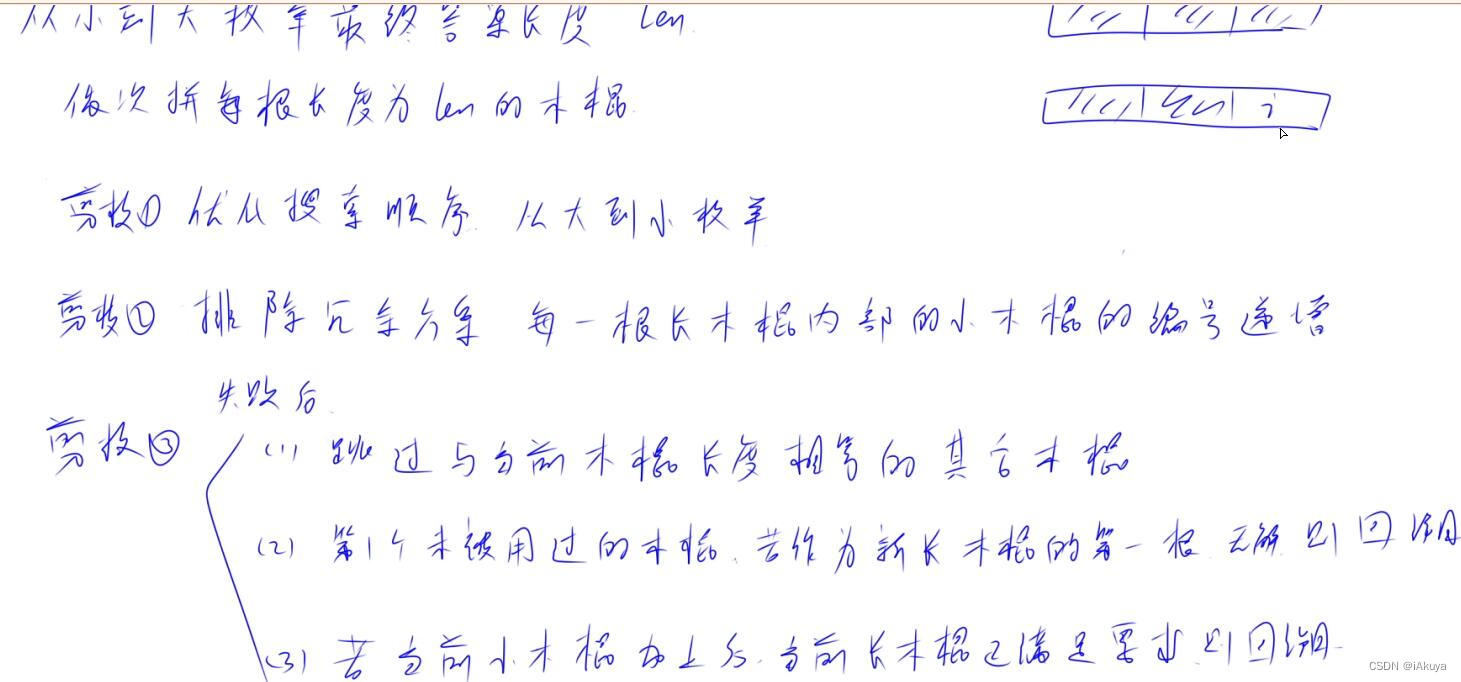 从小到大枚举最终答案长度 len
依次拼每根长度为 len 的木棍.
剪枝① 优化搜索顺序. 从大到小枚举
剪枝② 排除冗余方案 每一根长木棍内部的小木棍的编号递增
失败后.
剪枝③ (1) 跳过与当前木棍长度相等的其它木棍
(2) 第1个未被用过的木棍. 若作为新长木棍的第一根 无解 则回溯
(3) 若当前小木棍加上后. 当前长木棍已满足要求 则回溯.
CSDN @iAkuya